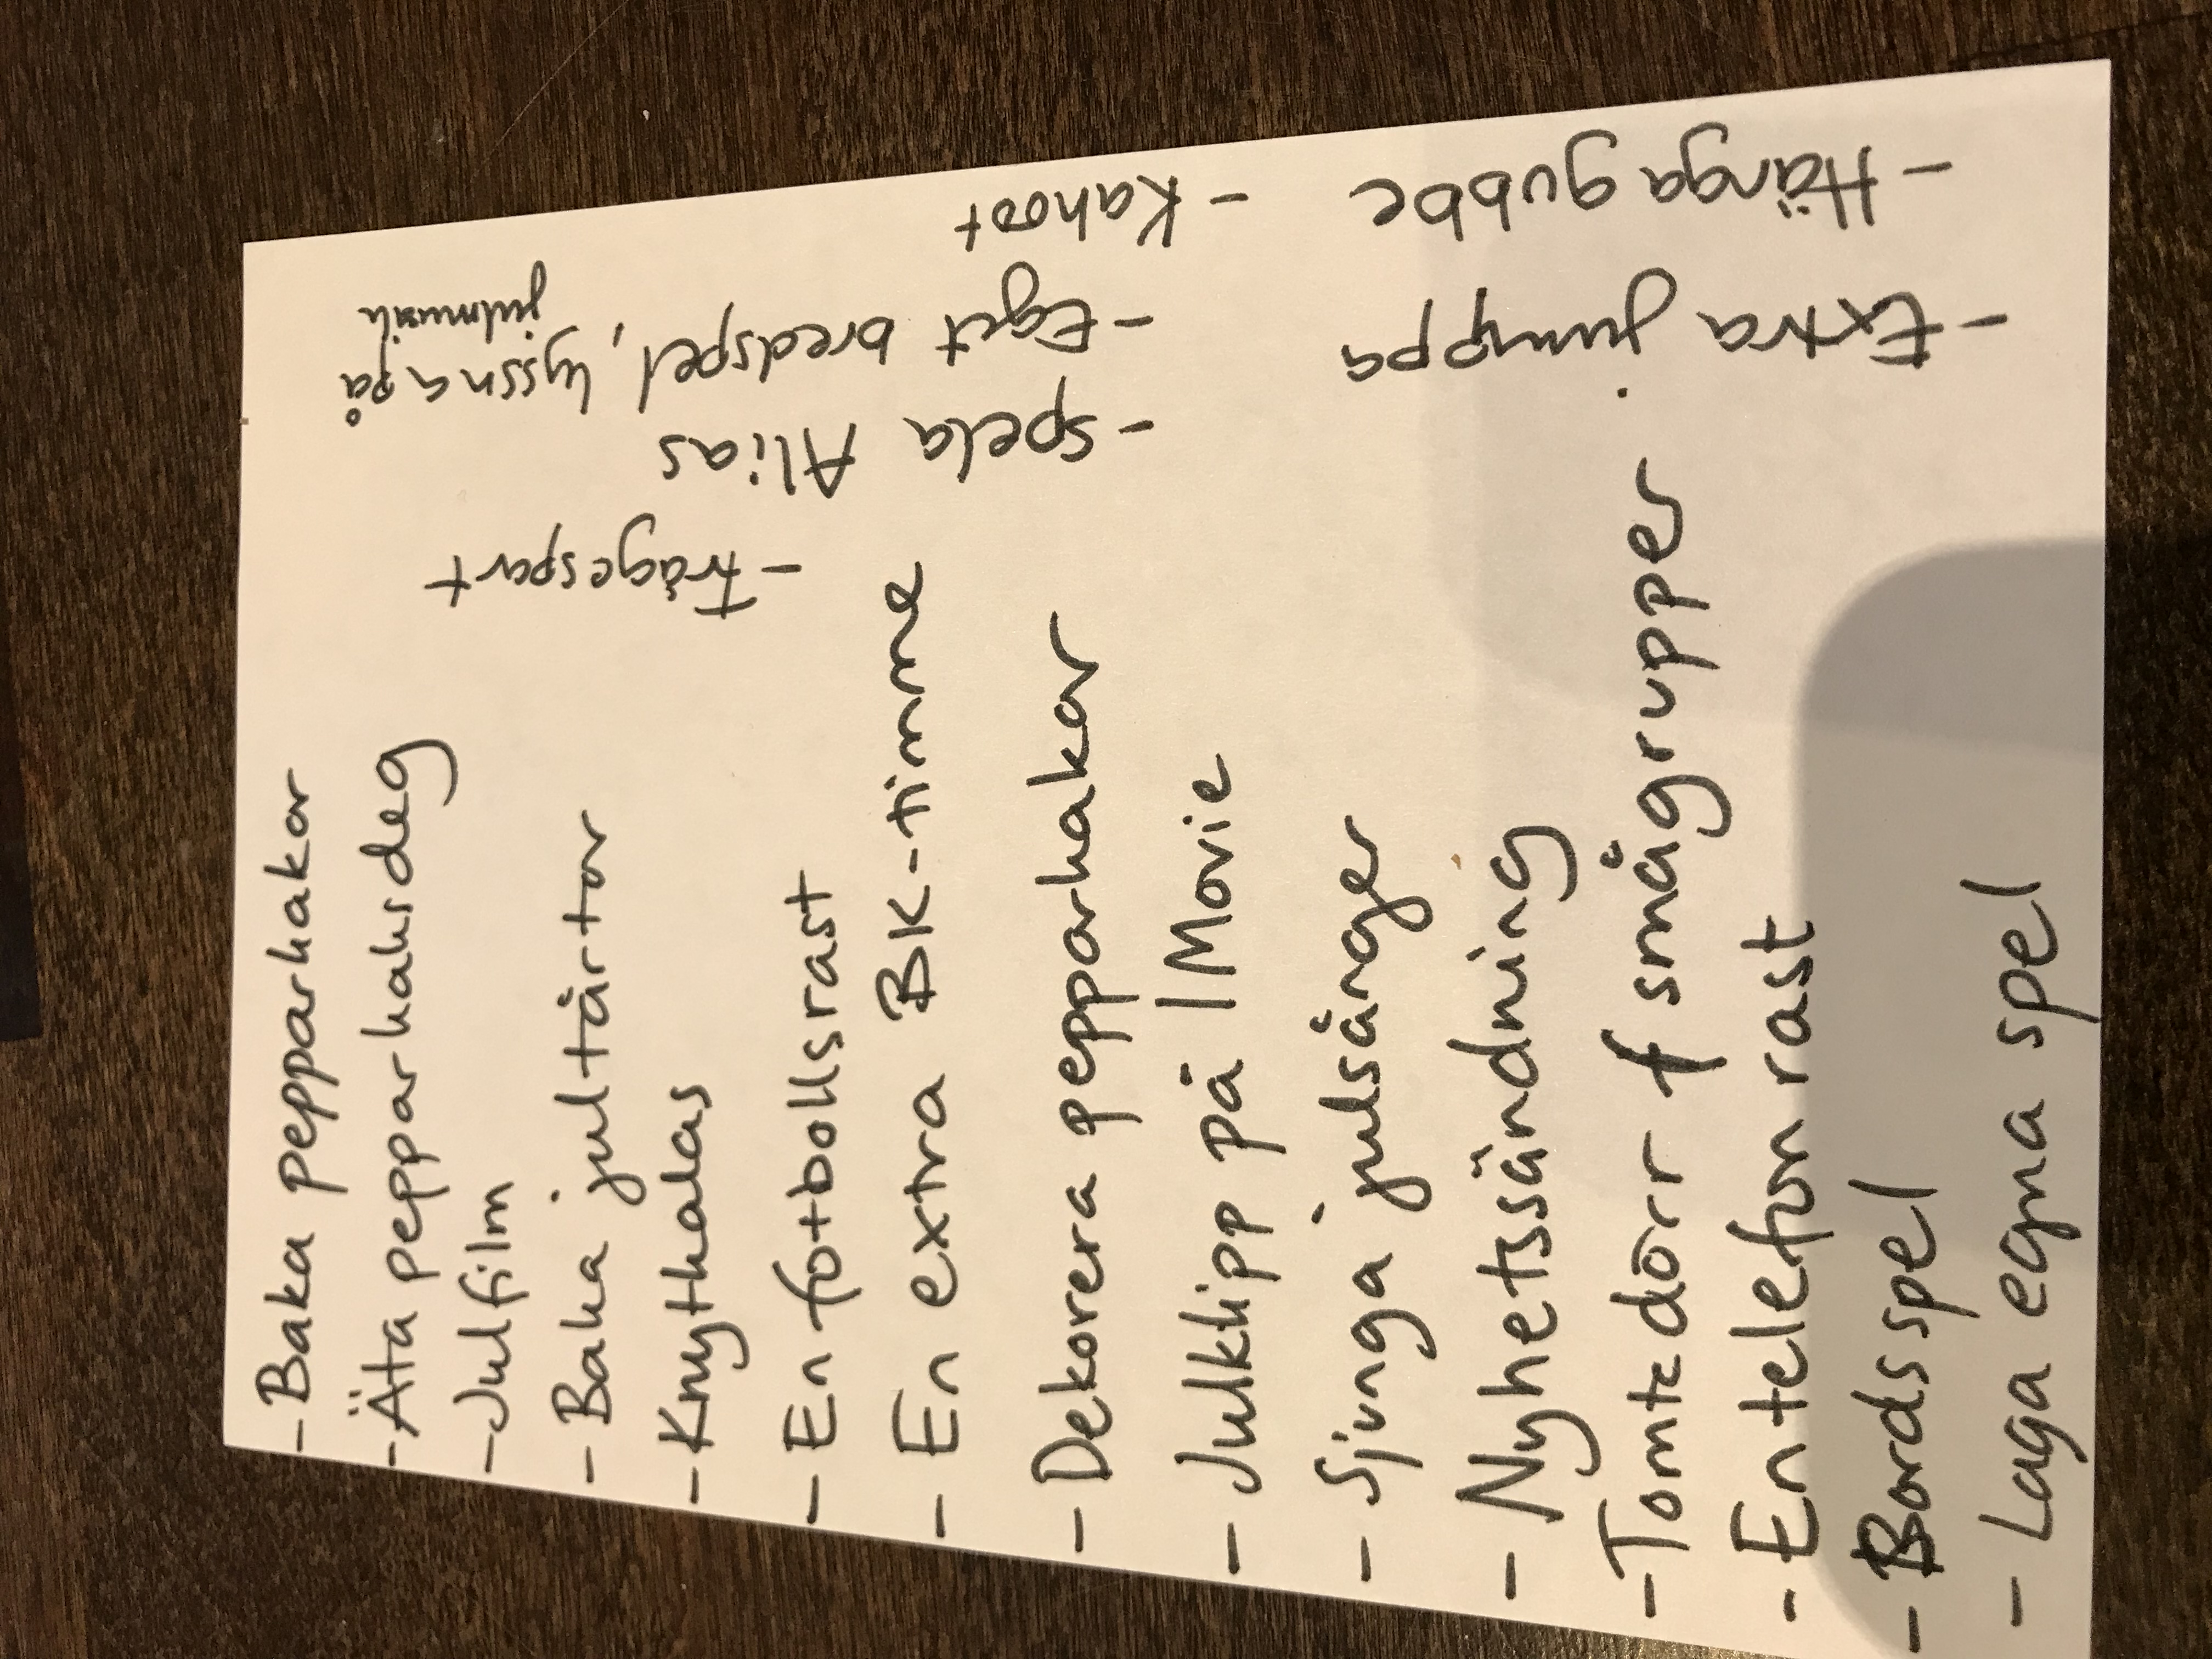 - Baka pepparkakor
- Äta pepparkaksdeg
- Julfilm
- Baka jultårtor
- Knytkalas
- En fotbollsrast
- En extra BK-timme
- Dekorera pepparkakor
- Julklipp på IMovie
- Sjunga julsånger
- Nyhetssändning
- Tomtedörr f smågrupper
- En telefonrast
- Bordsspel
- Laga egna spel
- Hänga gubbe
- Extra jumppa
- Kahoot
- Eget bredspel, lyssna på
julmusik
- spela Alias
- Frågesport